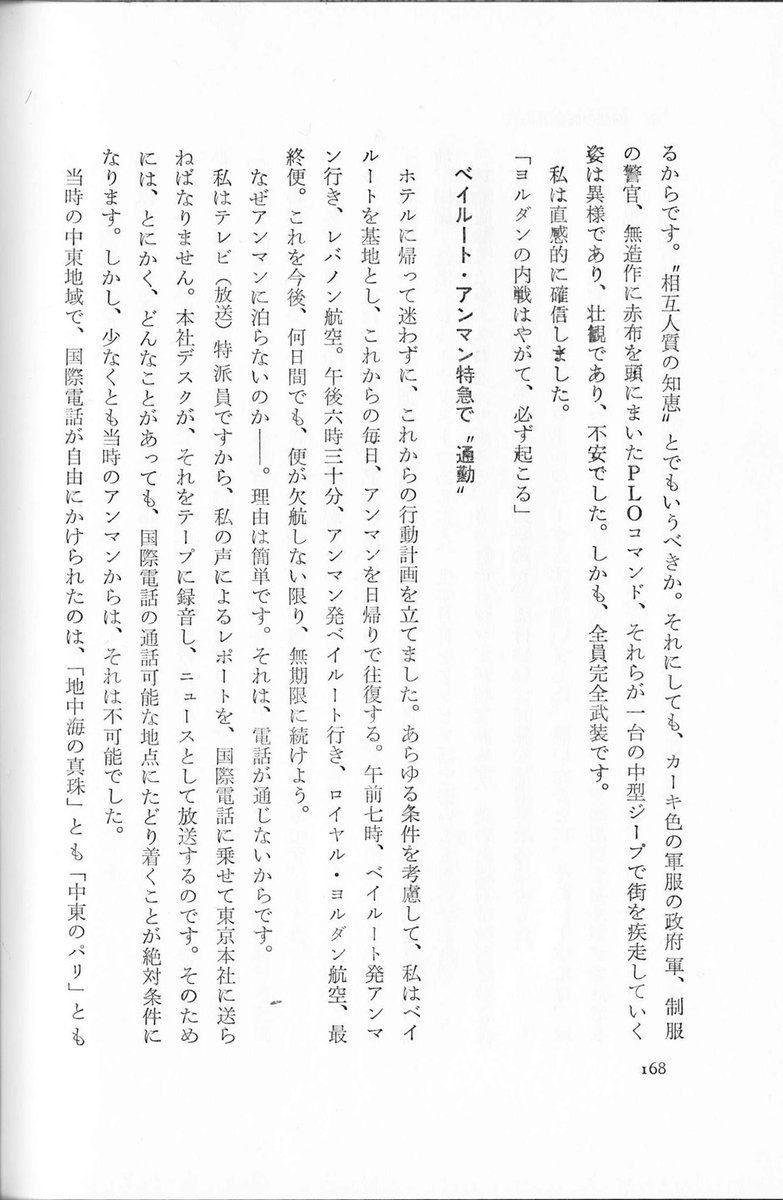 るからです。〝相互人質の知恵〟とでもいうべきか。それにしても、カーキ色の軍服の政府軍、制服
の警官、無造作に赤布を頭にまいたPLOコマンド、それらが一台の中型ジープで街を疾走していく
姿は異様であり、壮観であり、不安でした。しかも、全員完全武装です。
私は直感的に確信しました。
「ヨルダンの内戦はやがて、必ず起こる」
ベイルート・アンマン特急で〝通勤〟
ホテルに帰って迷わずに、これからの行動計画を立てました。あらゆる条件を考慮して、私はベイ
ルートを基地とし、これからの毎日、アンマンを日帰りで往復する。午前七時、ベイルート発アンマ
ン行き、レバノン航空。午後六時三十分、アンマン発ベイルート行き、ロイヤル・ヨルダン航空、最
終便。これを今後、何日間でも、便が欠航しない限り、無期限に続けよう。
なぜアンマンに泊らないのか――。理由は簡単です。それは、電話が通じないからです。
私はテレビ(放送)特派員ですから、私の声によるレポートを、国際電話に乗せて東京本社に送ら
ねばなりません。本社デスクが、それをテープに録音し、ニュースとして放送するのです。そのため
には、とにかく、どんなことがあっても、国際電話の通話可能な地点にたどり着くことが絶対条件に
なります。しかし、少なくとも当時のアンマンからは、それは不可能でした。
当時の中東地域で、国際電話が自由にかけられたのは、「地中海の真珠」とも「中東のパリ」とも
168